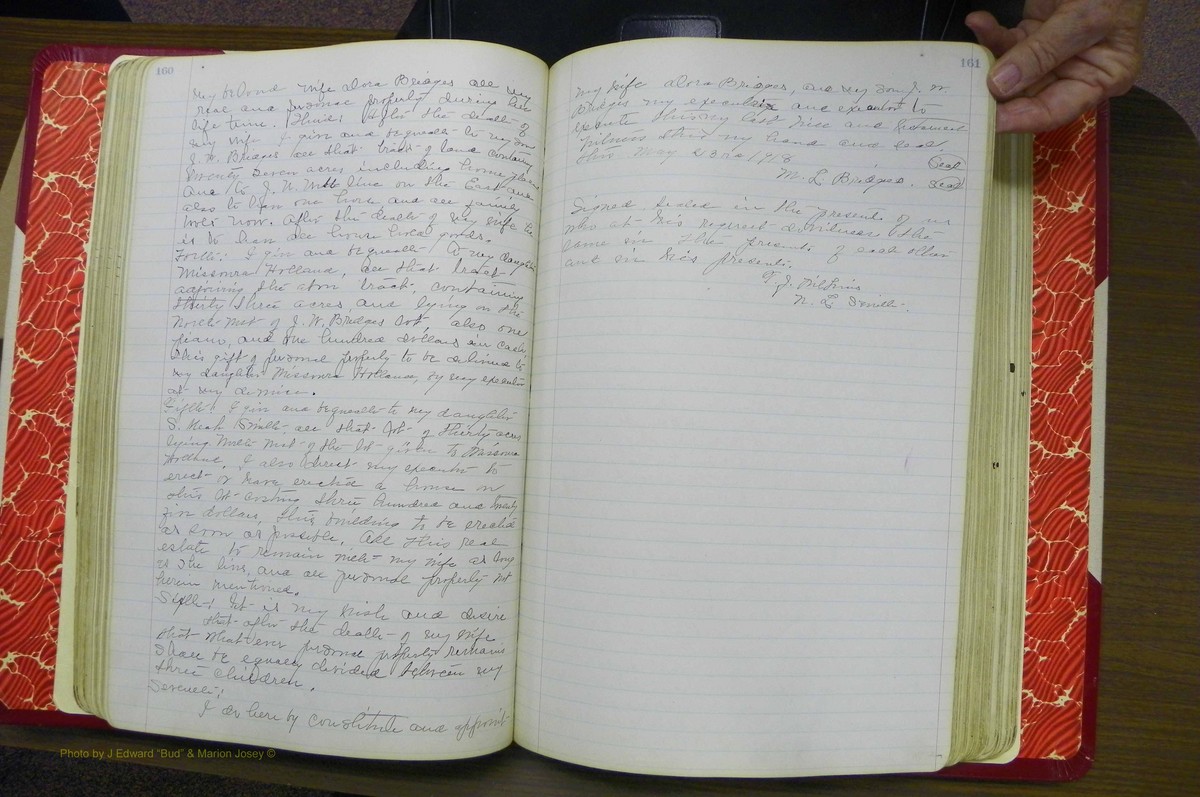 160
my beloved wife Dora Bridges all my
real and personal property during her
life time. Third: After the death of
my wife I give and bequeath to my son
J. W. Bridges all that tract of land containing
twenty seven acres including home place
and to J. N. line on the East and
also to have one horse and all farming
tools now. After the death of my wife he
is to have all house hold goods.
I give and bequeath to my daughter
Missoura Holland, all that tract
adjoining the abov tract, containing
thirty three acres and lying on the
North West of J. W. Bridges lot, also one
piano, and one hundred dollars in cash,
this gift of personal property to be delivered to
my daughter Missoura Holland, by my executor
at my demise.
Fifth: I give and bequeath to my daughter
S. Smith all that lot of thirty acres
lying North West of the lot given to Missoura
Holland, I also direct my executor to
erect or have erected a house on
this lot costing three hundred and twenty
five dollars, this building to be erected
as soon as possible. All this real
estate to remain with my wife as long
as she lives, and all personal property not
herein mentioned.
Sixth: It is my wish and desire
that after the death of my wife
that whatever personal property remains
shall be equally divided between my
three children.
Seventh:
I do here by constitute and appoint
161
my wife Dora Bridges, and my son J. W.
Bridges my executrix and executor to
execute this my last will and testament
witness this my hand and seal
this May 23rd 1918 (Seal)
M. L. Bridges. Seal
Signed sealed in the presents of us
who at his request do witness the
same in the presents of each other
and in his presents.
T. J. Wilkins
N. L. Smith.
Photo by J Edward "Bud" & Marion Josey ©